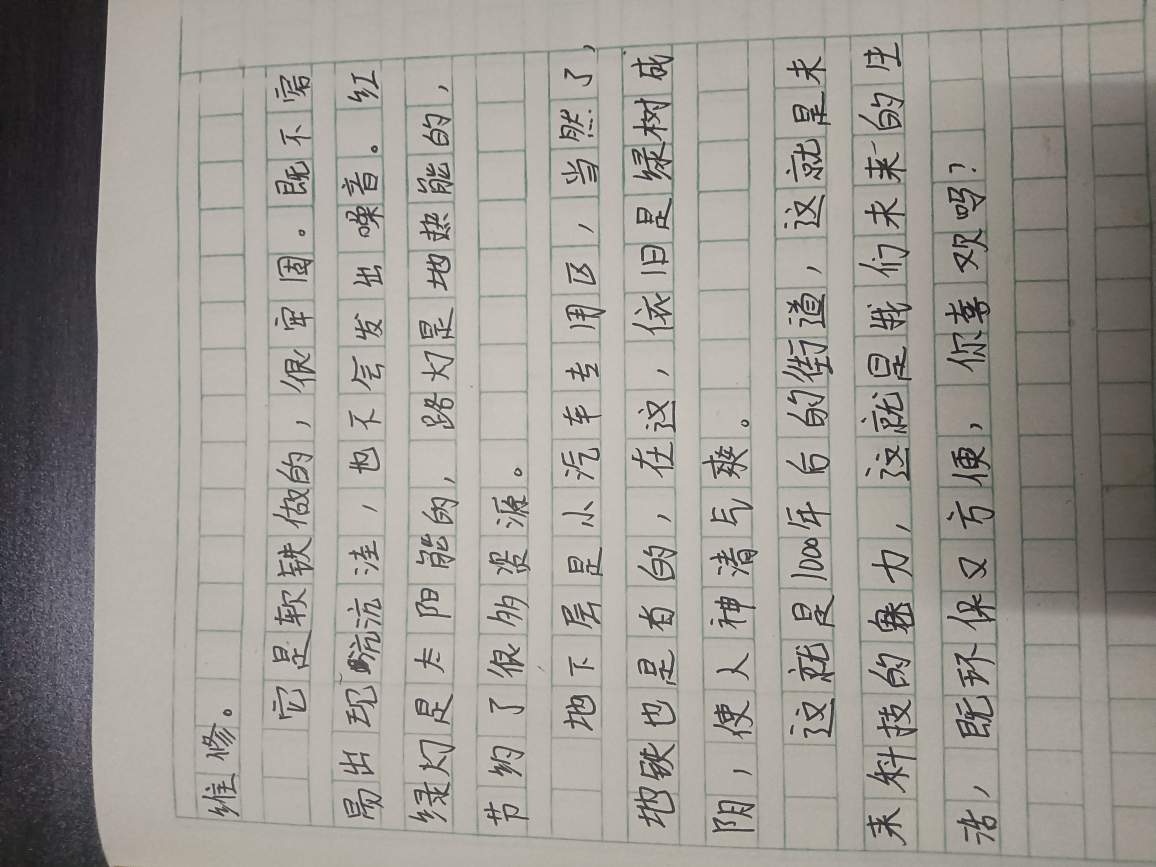 维修。
它是软铁做的，很牢固。既不需
易出现坑坑洼，也不会发出噪音。红
绿灯是太阳能的，路灯是地热能的，
节约了很多资源。
地下层是小汽车专用区，当然了，
地铁也是有的，在这，依旧是绿树成
阴，使人神清气爽。
这就是1000年后的街道，这就是未
来科技的魅力，这就是我们未来的生
活，既环保又方便，你喜欢吗？